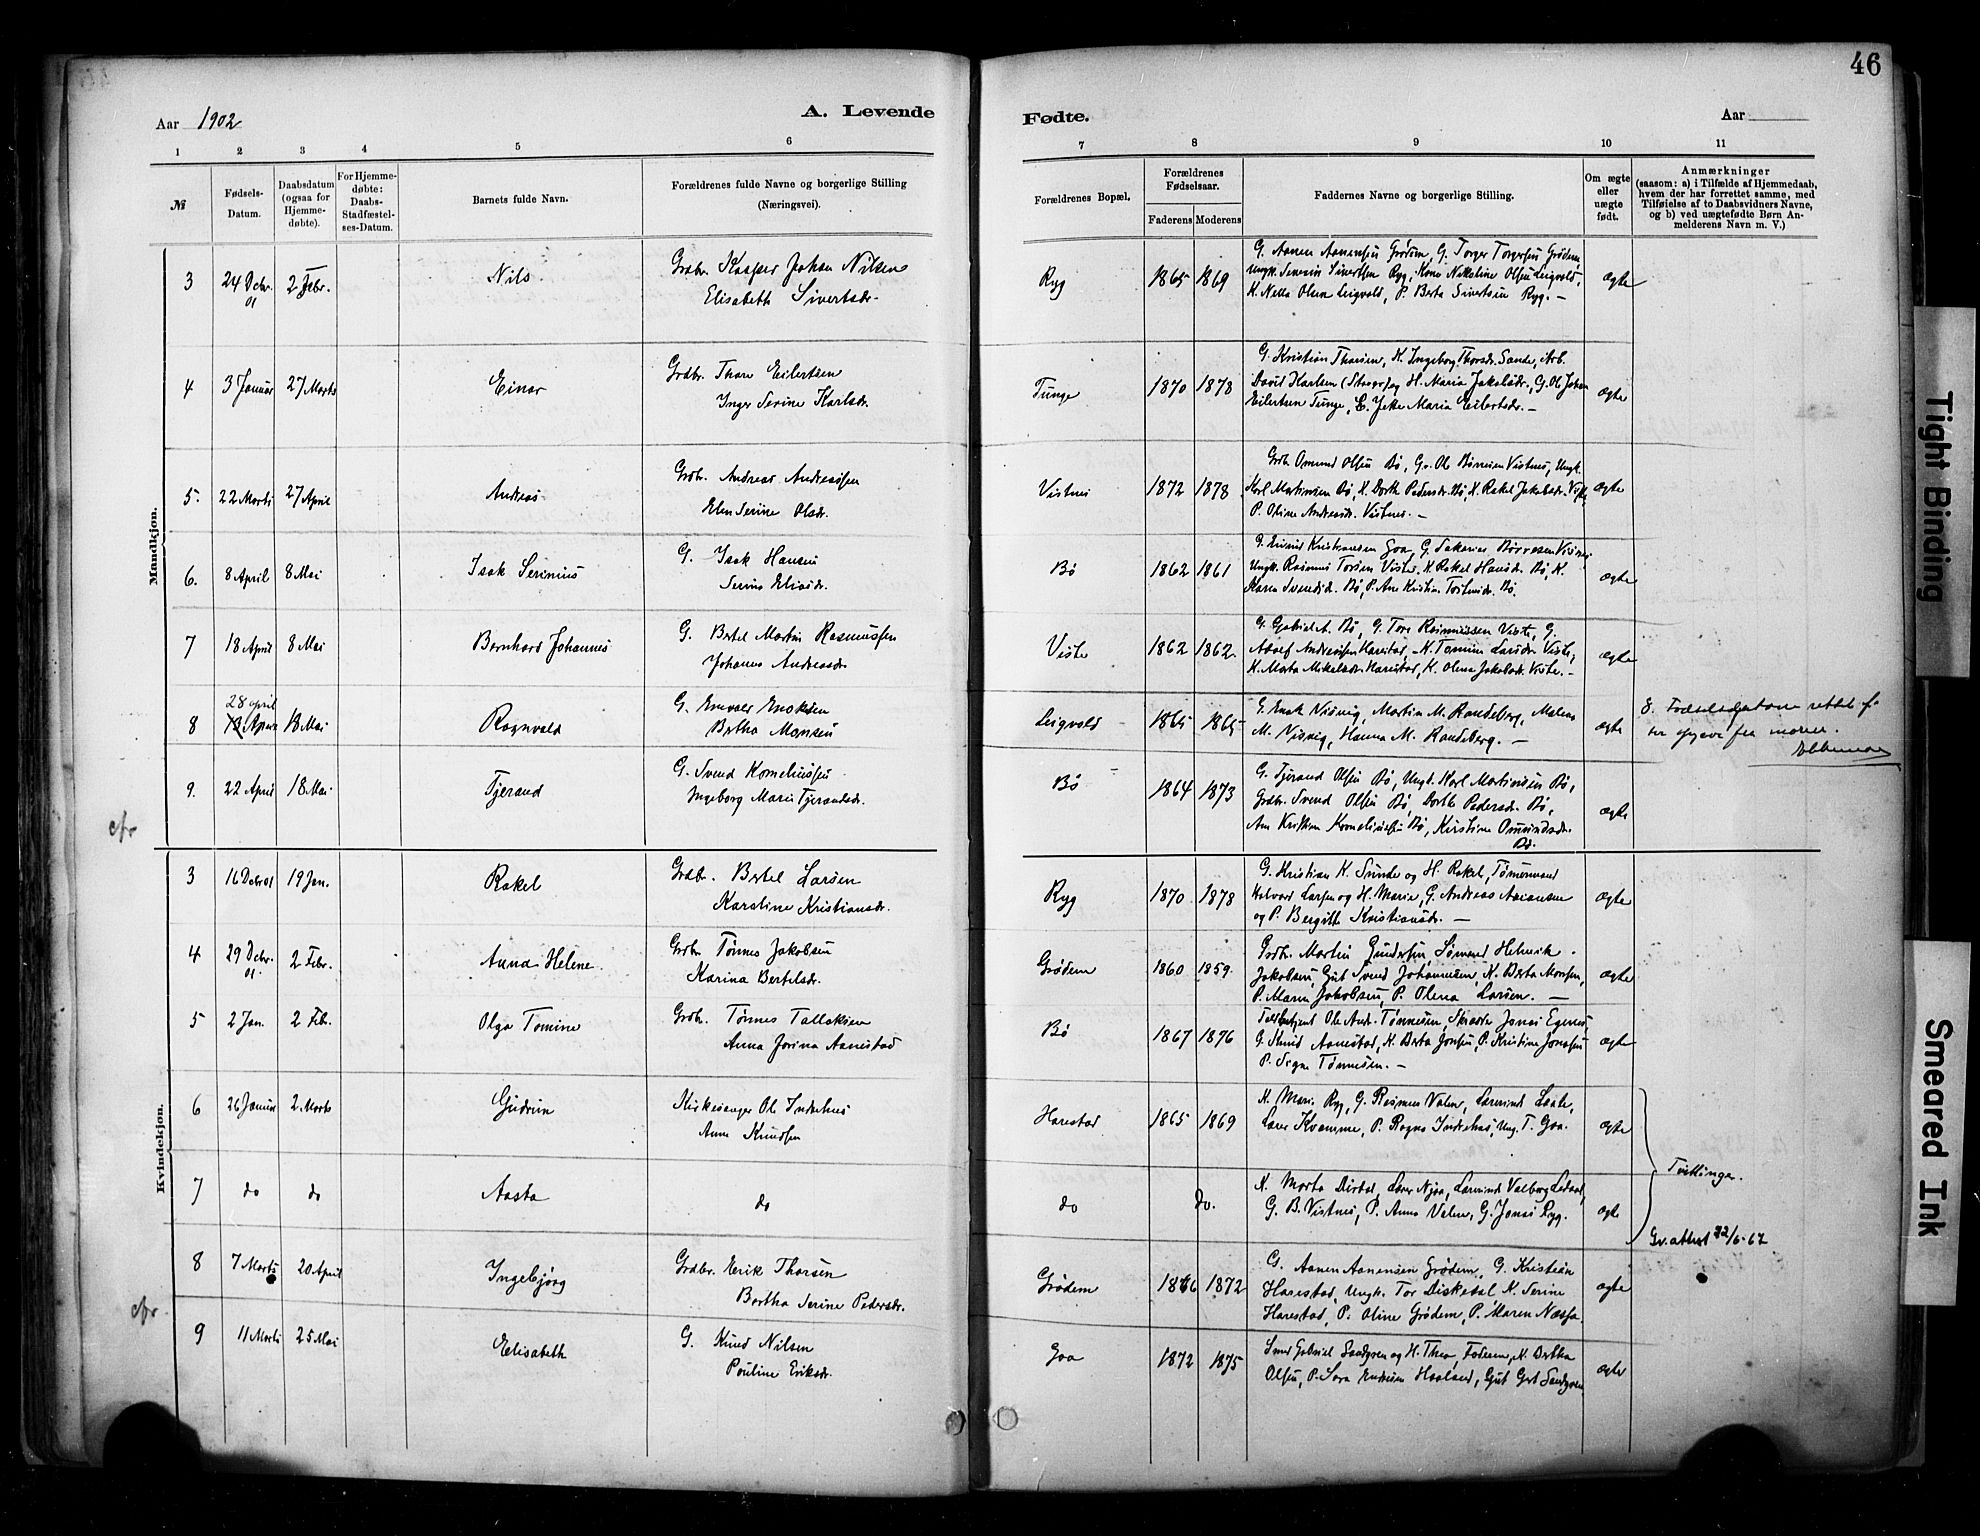 46
Aar 1902
A. Levende
Fødte.
Aar
1 2 3 4 5 6 7 8 9 10 11
№
Fødsels-
Datum.
Daabsdatum
(ogsaa for
Hjemme-
døbte).
For Hjemme-
døbte:
Daabs-
Stadfæstel-
ses-Datum.
Barnets fulde Navn.
Forældrenes fulde Navne og borgerlige Stilling
(Næringsvei).
Forældrenes Bopæl.
Forældrenes
Fødselsaar.
Faderens Moderens
Faddernes Navne og borgerlige Stilling.
Om ægte
eller
uægte
født.
Anmærkninger
(saasom: a) i Tilfælde af Hjemmedaab,
hvem der har forrettet samme, med
Tilføielse af to Daabsvidners Navne,
og b) ved uægtefødte Børn An-
melderens Navn m. V.)
Mandkjøn.
3 24 Debr. 01 2 Febr. Nils Grdbr. Kasper Johan Nilsen
Elisabeth Sivertsdr.
Ryg 1865 1869 G. Aanen Aanensen Grødem, G. Torger Torgersen Grødem
Ungk. Severin Sivertsen Ryg, Kone Nikoline Olsen Leigvold,
K. Nella Olsen Leigvold, P. Berta Sivertsen Ryg. —
ægte
4 3 Januar 27 Marts Einar Grdbr. Thore Eilertsen
Inger Serine Karlsdr.
Tunge 1870 1878 G. Kristian Thorsen, K. Ingeborg Thorsdr. Sande, Arb.
David Karlsen (Stavanger) H. Maria Jakobsdr., G. Ole Johan
Eilertsen Tunge, E. Jette Maria Eilertsdr. —
ægte
5. 22 Marts 27 April Andreas Grdbr. Andreas Andreassen
Elen Serine Olsdr.
Vistnes 1872 1878 Grdb. Omund Olsen Bø, G. Ole Børresen Vistnes, Ungk.
Karl Martinsen Bø, K. Dorth. Pedersdr. Bø, K. Rakel Jakobsdr. Viste,
P. Oline Andreasdr. Vistnes. —
ægte
6. 8 April 8 Mai Isak Serinius G. Isak Hansen
Serine Eliasdr.
Bø 1862 1861 G. Eivind Kristiansen Goa, G. Sakarias Børresen Visnes
Ungk. Rasmus Torsen Viste, K. Rakel Hansdr. Bø, K.
Karen Svendsdr. Bø, P. Ane Kristine Tostensdr. Bø.
ægte
7 18 April 8 Mai Bernhard Johannes G. Bertel Martin Rasmussen
Johanne Andreasdr.
Viste 1862 1862. G. Gabriel A. Bø, G. Tore Rasmussen Viste, G.
Adolf Andreassen Harestad, K. Tomine Larsdr. Viste,
K. Marta Mikelsdr. Harestad, K. Olena Jakobsdr. Viste. —
ægte
28 april
8 13 April 18 Mai Ragnvald G. Enevald Enoksen
Bertha Monsen
Leigvold 1865 1865 G. Enok Visvig, Martin M. Randeberg, Malene
M. Visvig, Hanna M. Randeberg. —
ægte
8. Fødselsdatoen rettet
opgave fra moren.
9. 22 April 18 Mai Tjerand G. Svend Korneliussen
Ingeborg Marie Tjerandsdr.
Bø 1864 1873 G. Tjerand Olsen Bø, Ungk. Karl Martinsen Bø,
Grdbr. Svend Olsen Bø, Dorth. Pedersdr. Bø,
Ane Kristine Korneliussen Bø, Kirstine Omundsdr.
Bø.
ægte
cfr
Kvindekjøn.
3 16 Debr 01 19 Jan. Rakel Grdbr. Bertel Larsen
Karoline Kristiansdr.
Ryg 1870 1878 G. Kristian K. Sunde og H. Rakel, Tømmermand
Halvard Larsen og H. Marie, G. Andreas Asiansen
og P. Bergitte Kristiansdr. —
ægte
4 29 Debr. 01. 2 Febr. Anna Helene. Grdbr. Tønnes Jakobsen
Karina Bertelsdr.
Grødem 1860 1859. Grdbr. Martin Gundersen, Sømand Helmik
Jakobsen, Gut Svend Johannesen, K. Berta Monsen,
P. Maren Jakobsen, P. Olena Larsen. —
ægte
5 2 Jan. 2 Feb. Olga Tomine Grdbr. Tønnes Tallaksen
Anna Jorina Aanestad
Bø 1867 1876 Toldbetjent Ole Andr. Tønnesen, Skrædder Jonas Egenes
G. Knud Aanestad, K. Berta Jonsen, P. Kristine Jonassen
P. Signe Tønnesen. —
ægte
6 26 Januar 2. Marts Gudrun Kirkesanger Ole Indrehus
Anne Knudsen
Harestad 1865 1869 K. Marie Ryg, G. Rasmus Valen, Lærerinde Laate,
Lærer Kvamme, P. Ragna Indrehus, Ung. T. Goa.
ægte
7 do do Aasta do
do do. K. Marta Dirdal, Lærer Njaa, Lærerinde Valborg Ledaal,
G. B. Vistnes, P. Anna Valen, G. Jonas Ryg.
ægte
Tvillinger.
Gv. attest 22/6-62
8 7 Marts 20 April Ingebjørg Grdbr. Erik Thorsen
Bertha Serine Pedersdr.
Grødem 1866 1872 G. Aanen Aanensen Grødem, G. Kristian
Harestad, Ungk. Tor Diskedal, K. Serine
Harestad, P. Oline Grødem, P. Maren Næssa.
ægte
cfr.
9 11 Marts 25 Mai Elisabeth G. Knud Nilsen
Pouline Eriksdr.
Goa 1872 1875 Smed Gabriel Sandgren og H. Thea, Faderen, K. Bertha
Olsen, P. Sara Endresen Haaland, Gut Gert Sandgren
ægte
Tight Binding
Smeared Ink